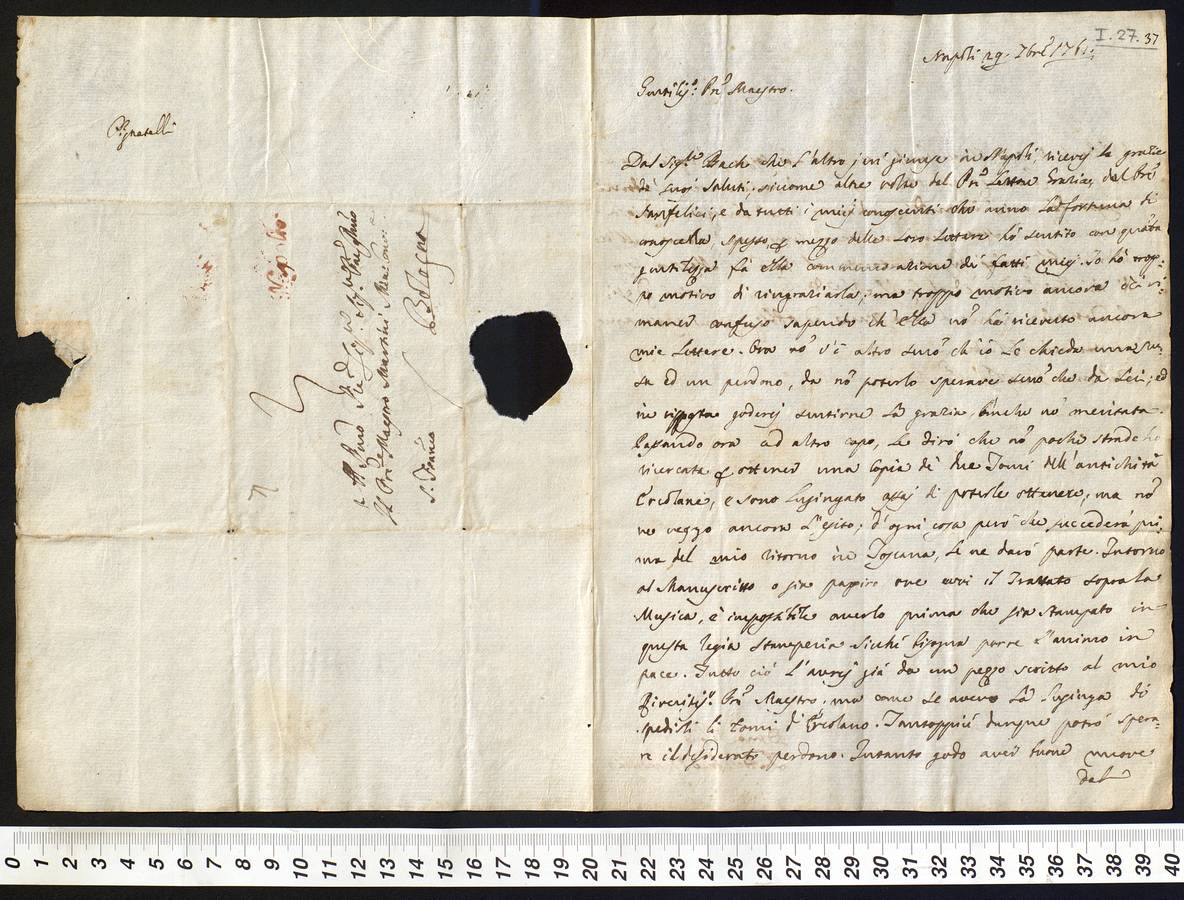 Pignatelli
Napoli
Al Pre Maestro Martini
S. Franco Bologna
I.27.37
Napoli 29. 7bre 1761.
Gentilismo: Pre Maestro.
Dal Sigre Bach che l'altro jeri giunse in Napoli, ricevej le grazie
de' suoi saluti, siccome altre volte dal Pre Lettore Grazia, dal Pre
Sanfelici, e da tutti i miei conoscenti che anno la fortuna di
conoscerla, spesso, e mezzo delle loro lettere hò sentito con quanta
gentilezza fà ella commemorazione de' fatti miej. Io hò trop-
po motivo di ringraziarla; ma troppo motivo ancora di ri-
maner confuso sapendo ch'ella nō hà ricevuto ancora
mie lettere. Ora nō v'è altro senō ch'io le chieda una scu-
sa ed un perdono, da nō poterlo sperare senō che da Lei; ed
in risposta goderej sentirne la grazia, benche nō meritata.
Passando ora ad altro capo, le dirò che nō poche strade ho
ricercate p ottener una copia de' due Tomi dell'antichità
Ercolane, e sono lusingato assaj di poterle ottenere, ma nō
ne veggo ancora l'esito; d'ogni cosa però che succederà pri-
ma del mio ritorno in Toscana, le ne darò parte. Intorno
al Manuscritto o sia papiro ove evvi il Trattato sopra la
Musica, è impossibile averlo prima che sia stampato in
questa regia stamperia sicché bisogna porre l'animo in
pace. Tutto ciò l'averej già da un pezzo scritto al mio
Riveritismo: Pre Maestro; ma come se avevo la lusinga di
spedirli li tomi d'Ercolano. Tantoppiù dunque potrò spera-
re il desiderato perdono. Intanto godo aver buone nuove
dal
0 1 2 3 4 5 6 7 8 9 10 11 12 13 14 15 16 17 18 19 20 21 22 23 24 25 26 27 28 29 30 31 32 33 34 35 36 37 38 39 40